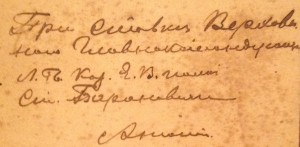 При ставки Верховнаго Главнокомандующаго
Л. Гв. Каз. Е. В. полка
ст. Барановичи